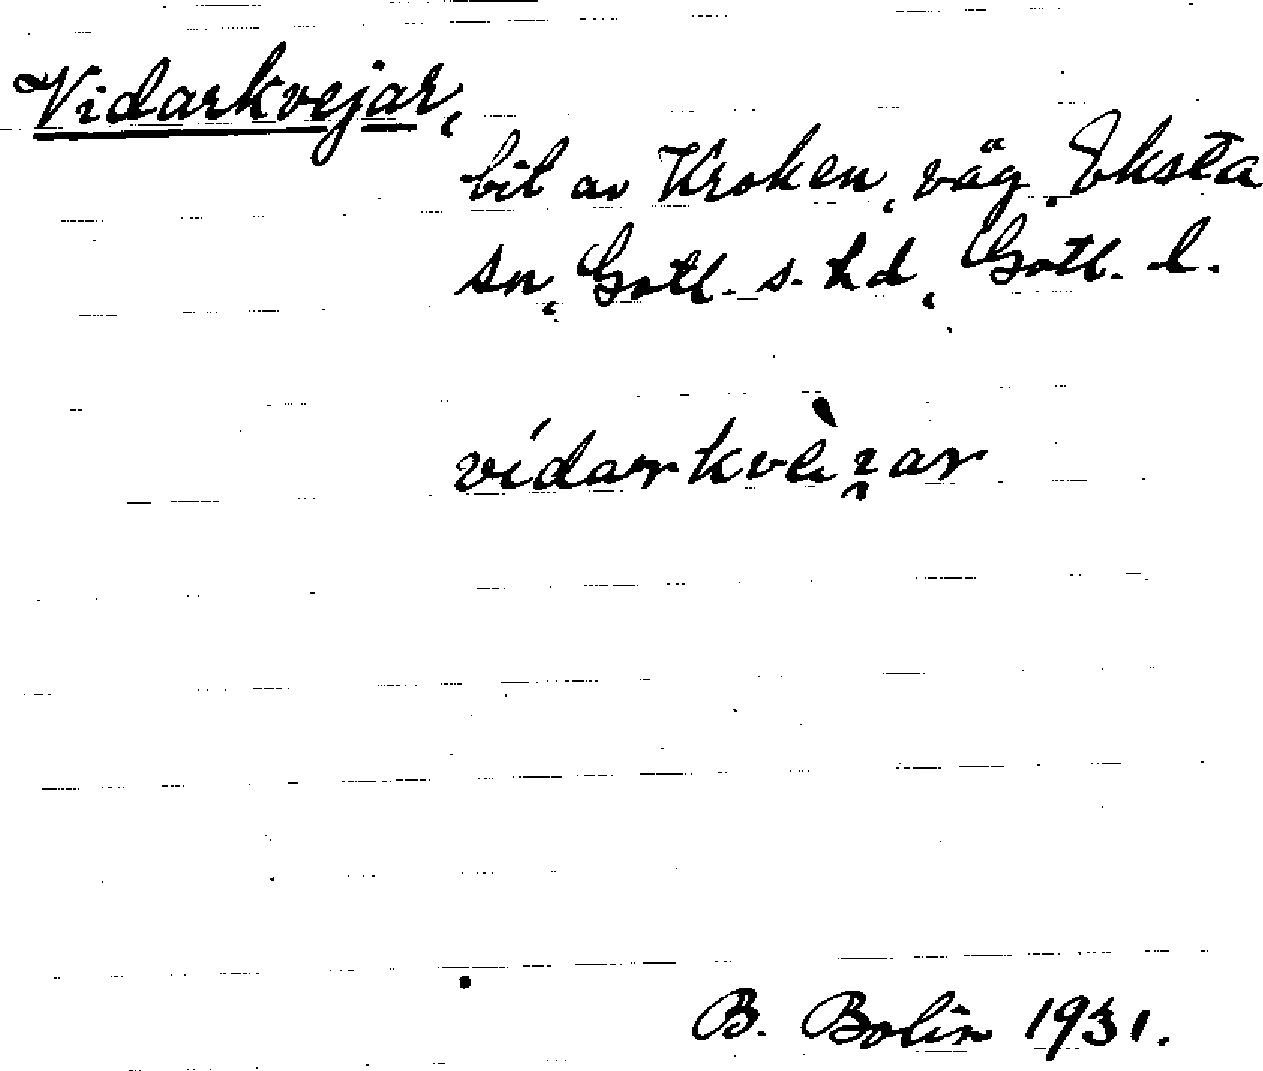 Vidarkvejar,
bil av Kroken, väg, Eksta
sn, Gotl. s. hd, Gotl. l.
vídarkvèi̯ar
B. Bolin 1931.